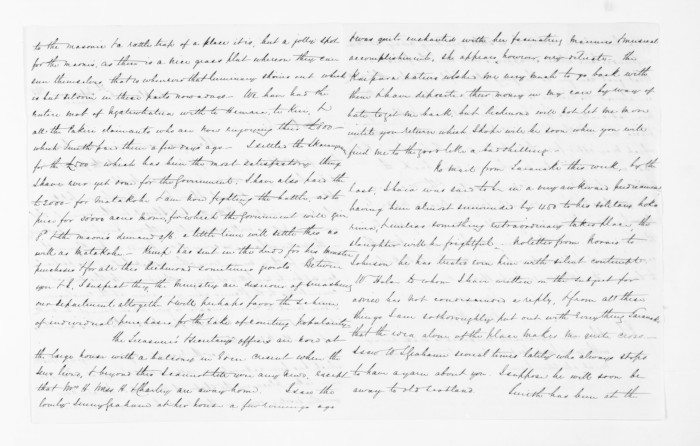 to the masonic & a rattle trap of a place it is, but a jolly spot
for the maoris, as there is a nice grass plat whereon they can
sun themselves that is whenever that luminary shines out which
is but seldom in these parts nowadays — We have had the
entire mob of Ngatiwhatua with te Hemara, te Keri, &
all the other claimants who are now enjoying their £500 —
which Smith paid them a few days ago — I settled the
for the £500 — which has been the most satisfactory thing
I have ever yet done for the Government, I have also paid the
£2000 for Matakohe & am now fighting the battle, as to
price for 10000 acres more, for which the Government will give
& the maoris demand a little time will settle this as
well as Matakohe — Kemp has sent in the deeds for his
purchases & for all this Richmond sometimes growls. Between
you & I, I suspect that the Ministry are desirous of smashing
our department altogether & will perhaps favor the scheme
of individual purchases for the sake of courting popularity
The Treasurer's & Secretary's offices are now at
the large house with a balcony in Eden crescent when the
lived, & beyond this I cannot tell you any news, except
that Wm H. Wass H. & Charley are away home. I saw the
lovely Jenny Graham at her house a few evenings ago
& was quite enchanted with her fascinating manners & musical
accomplishment, she appears, however, very delicate. The
Kaipara natives whole me very much to go back with
them & have deposited their money in my care by way of
bate to get me back but Richmond will not let me move
until you return which I hope will be soon when you will
find me to the good like a bad shilling —
No mail from Taranaki this week, by the
last, Ihaia was said to be in a very awkward predicament
having been almost surrounded by
unless something extraordinary takes place, the
slaughter will be frightful. No letter from to
Johnson he has treated even him with silent contempt
W Halse to whom I have written on the subject for
advice has not condescended a reply, & from all these
things I am so thoroughly put out with everything Taranaki
that the idea alone of the place makes me quite cross —
I saw to several times lately who always stops
to have a yarn about you I suppose he will soon be
away to old Scotland Smith has been at the